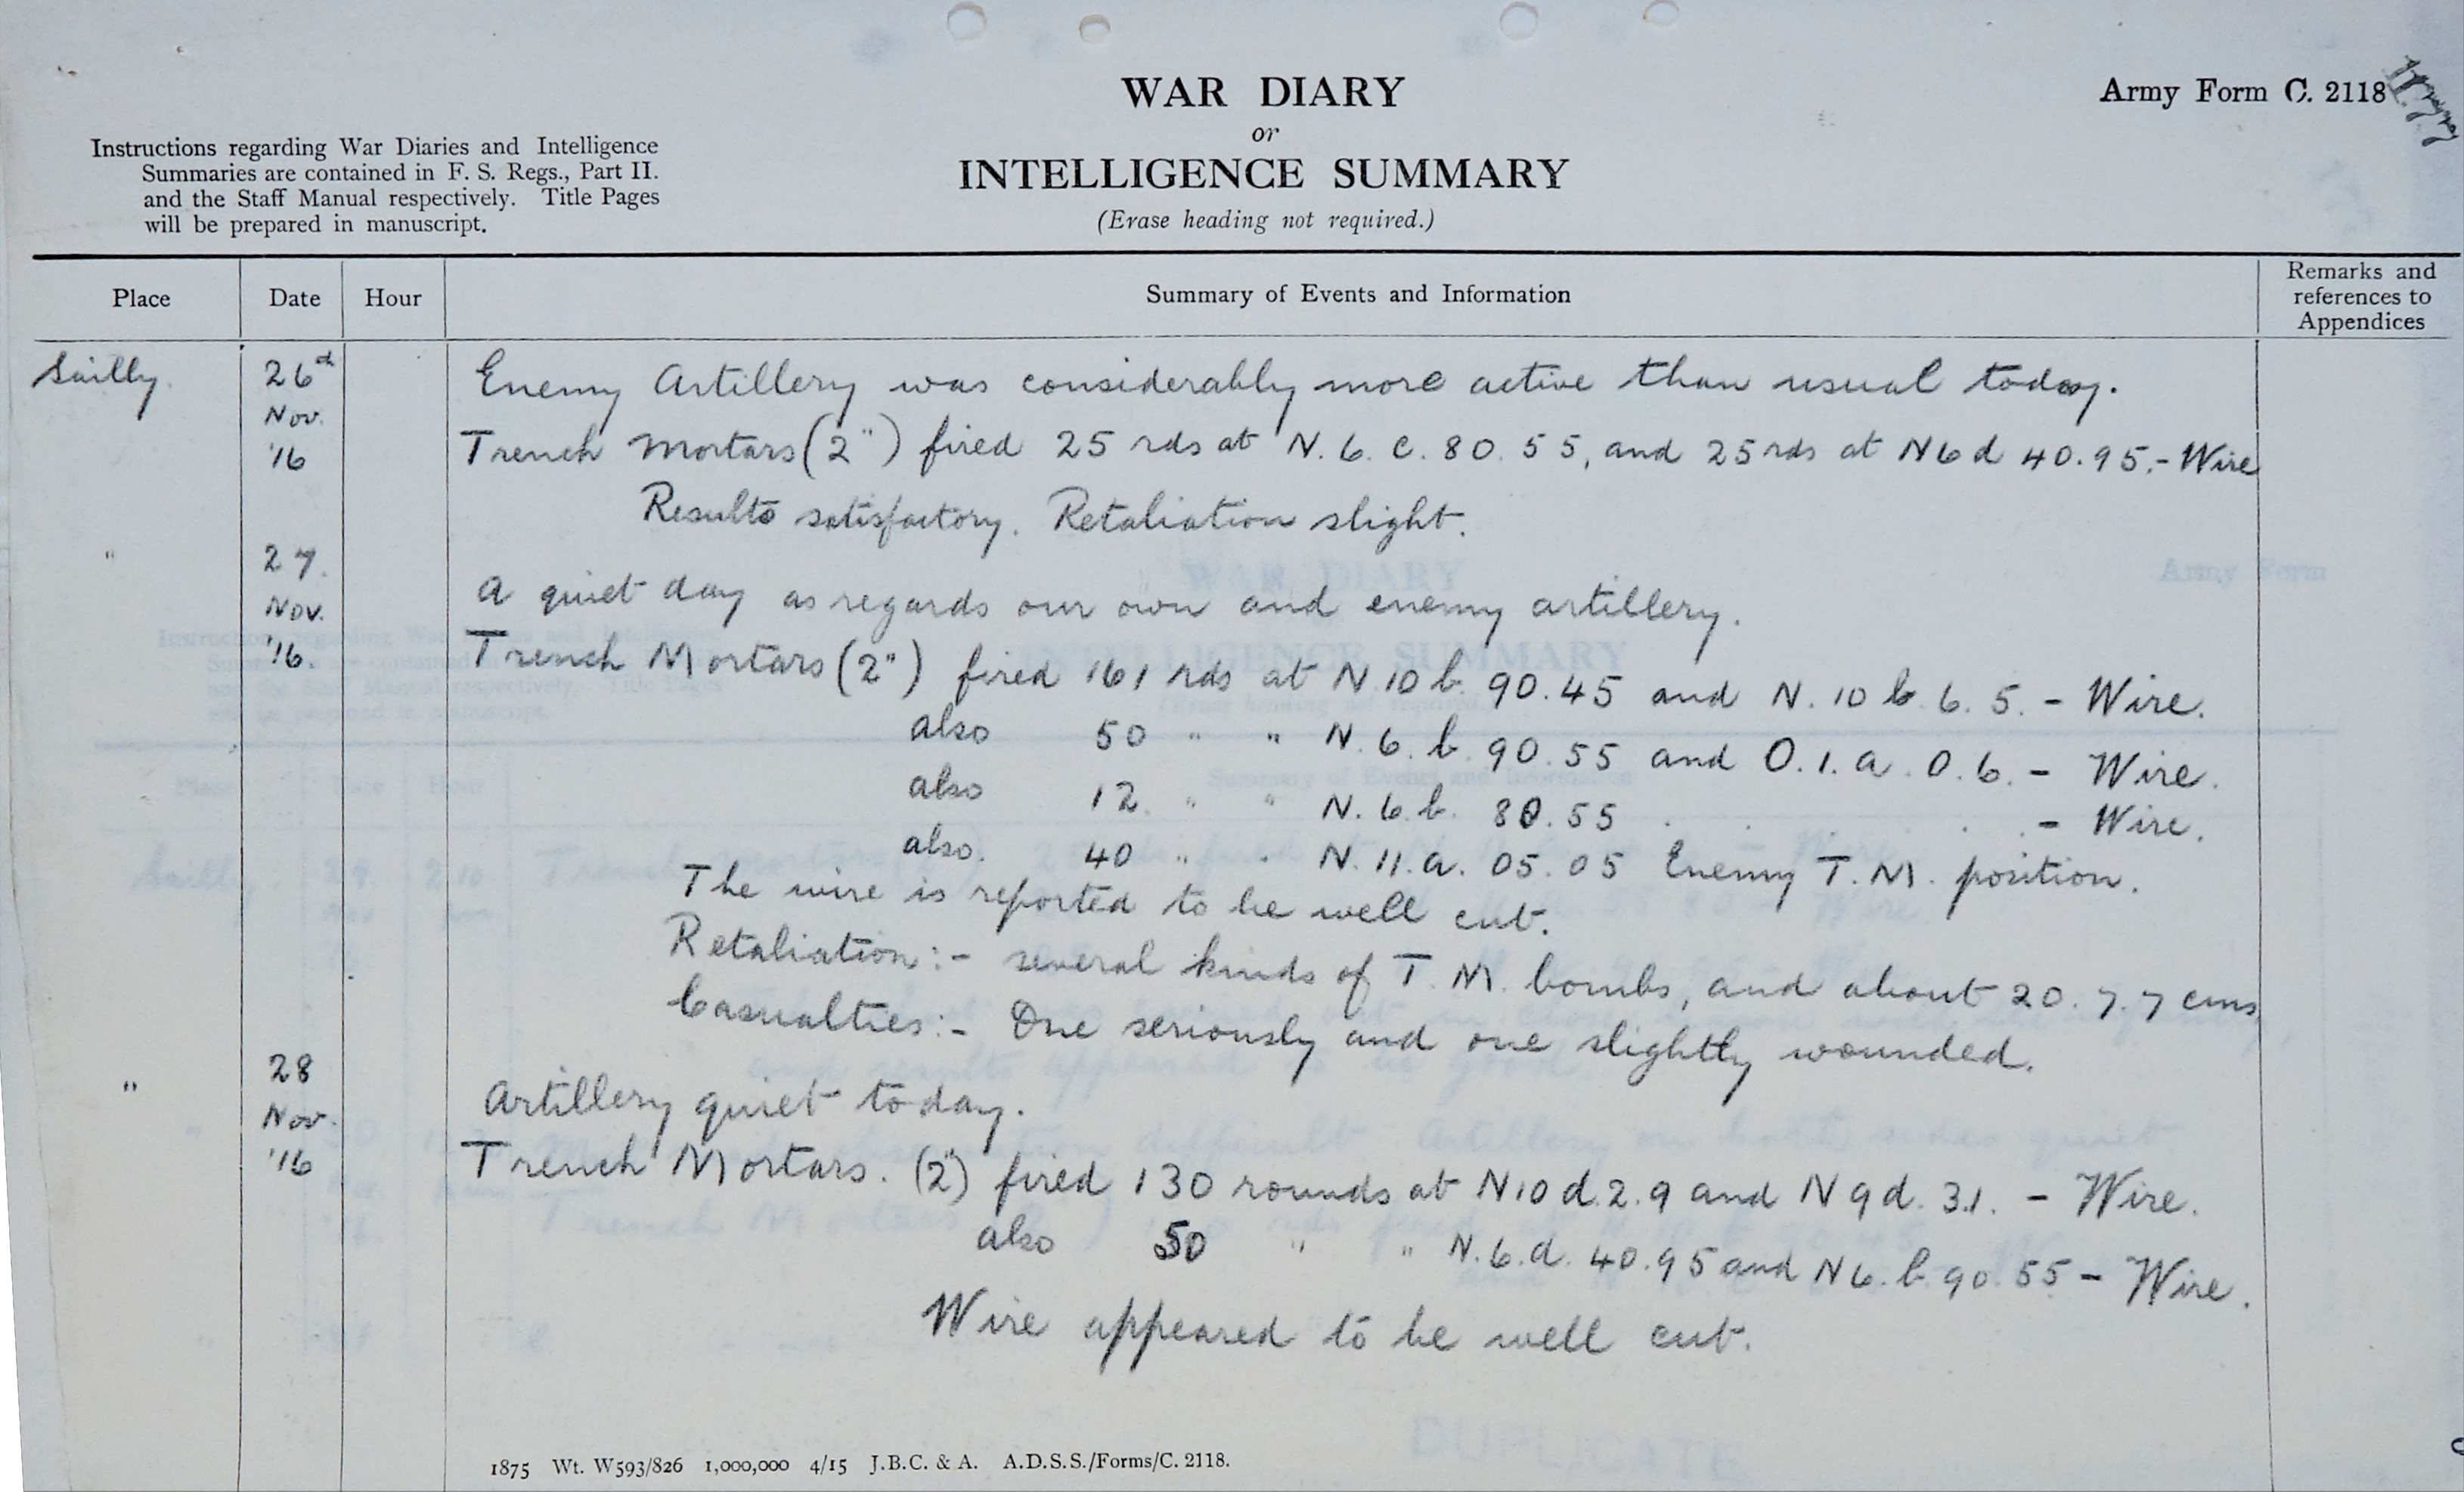 WAR DIARY
or
INTELLIGENCE SUMMARY
(Erase heading not required.)
Army Form C. 2118
Instructions regarding War Diaries and Intelligence
Summaries are contained in F. S. Regs., Part II.
and the Staff Manual respectively. Title Pages
will be prepared in manuscript.
Place Date Hour Summary of Events and Information Remarks and references to Appendices
Sailly. 26th Nov. '16 Enemy Artillery was considerably more active than usual today.
Trench Mortars (2") fired 25 rds at N. 6. c. 80. 55, and 25 rds at N 6 d 40.95.- Wire
Results satisfactory. Retaliation slight.
" 27. Nov. '16. A quiet day as regards our own and enemy artillery.
Trench Mortars (2") fired 161 rds at N.10 b. 90.45 and N. 10 b. 6. 5. - Wire.
also 50 " " N. 6. b. 90.55 and O.1.a. 0.6. - Wire.
also 12. " " N. 6. b. 80.55 - Wire.
also. 40 " " N. 11. a. 05.05 Enemy T.M. position.
The wire is reported to be well cut.
Retaliation:- several kinds of T.M. bombs, and about 20. 7.7 cms
Casualties:- One seriously and one slightly wounded.
" 28 Nov. '16 Artillery quiet today.
Trench Mortars. (2") fired 130 rounds at N10 d.2.9 and N 9 d. 3.1. - Wire.
also 50 " " N.6.d. 40.95 and N 6. b. 90.55 - Wire.
Wire appeared to be well cut.
1875 Wt. W593/826 1,000,000 4/15 J.B.C. & A. A.D.S.S./Forms/C. 2118.